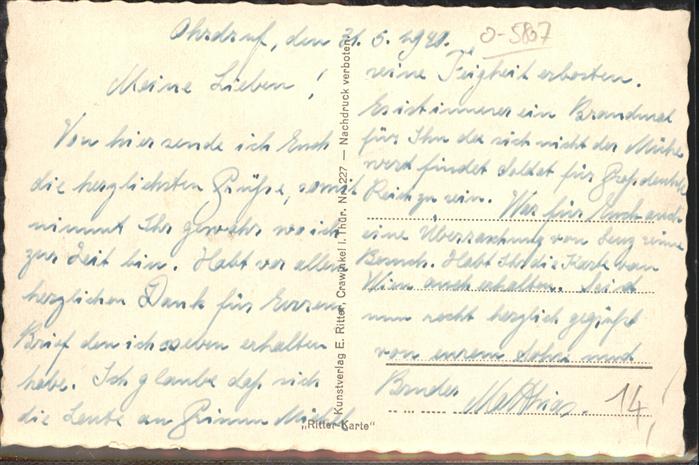 Ohrdruf, den 21.5.1940.
O-5807
Meine Lieben!
Von hier sende ich Euch
die herzlichsten Grüße, somit
nimmt Ihr gewahr wo ich
zur Zeit bin. Habt vor allem
herzlichen Dank für Euren
Brief den ich soeben erhalten
habe. Ich glaube daß sich
die Leute an Grimm Michel
seine Feigheit erbosten.
Es ist immer ein Brandmal
für Ihn der sich nicht der Mühe
wert findet Soldat für Großdeutsch
Reich zu sein. War für Euch auch
eine Überraschung von Senz seine
Besuch. Habt Ihr die Karte von
Wien auch erhalten. Seid
nun recht herzlich gegrüßt
von eurem Sohn und
Bruder Matthias.
14!
Kunstverlag E. Ritter, Crawinkel i. Thür. Nr. 227 — Nachdruck verboten
„Ritter-Karte“